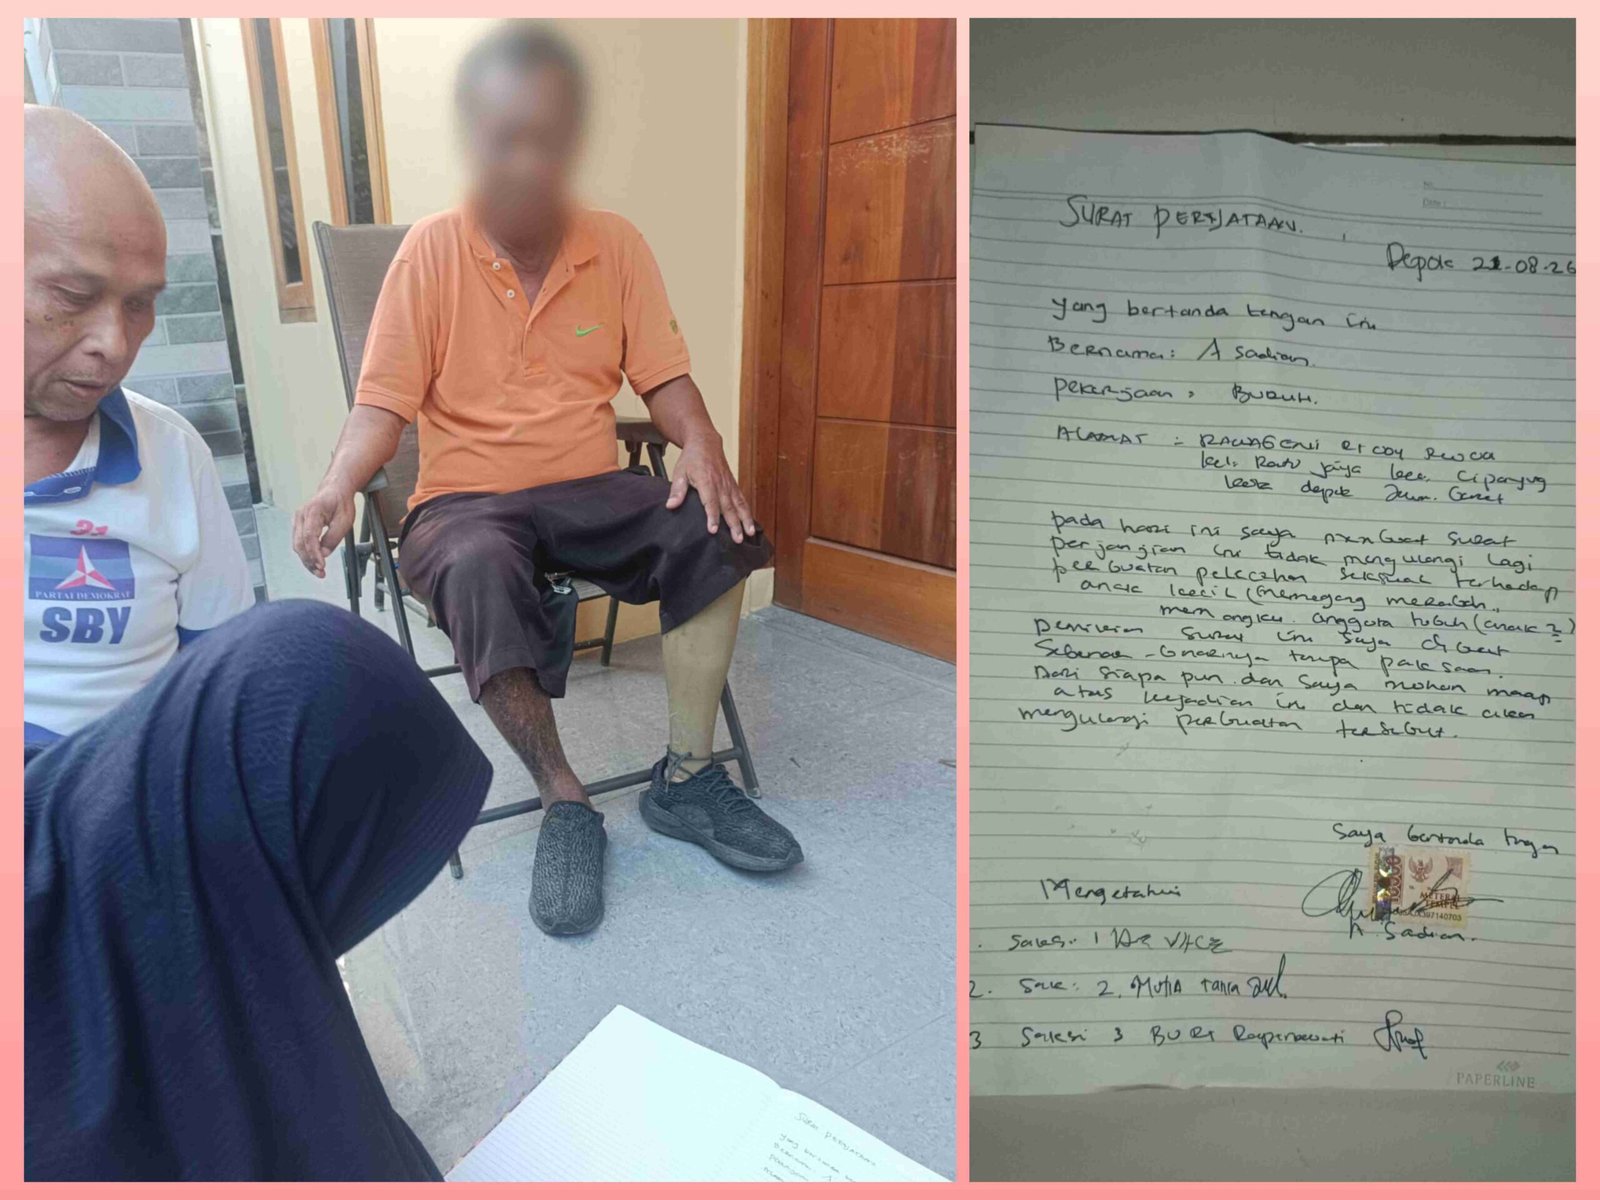 31
PARTAI DEMOKRAT
SBY
SURAT PERNYATAAN
yang bertanda tangan
SURAT PERNYATAAN.
Depok 21-08-26
yang bertanda tangan ini
Bernama: A Sadian
pekerjaan : BURUH.
ALAMAT = RAWAGENI RT 004 RW
kel. Ratu jaya kec. Cipayung
kota depok Jawa. Barat
pada hari ini saya membuat surat
perjanjian ini tidak mengulangi lagi
perbuatan pelecehan seksual terhadap
anak kecil (memegang meraboh,
memangku. anggota tubuh (anak 2)
surat ini saya dibuat
Sebenar-benarnya tanpa paksaan.
Dari siapa pun. dan saya mohon maap
atas kejadian ini dan tidak akan
mengulangi perbuatan tersebut.
Saya bertanda tangan
METERAI
TEMPEL
A. Sadian.
Mengetahui
Saksi: 1
2. Sak: 2. MUTIA
3 Saksi 3 BU RT
PAPERLINE